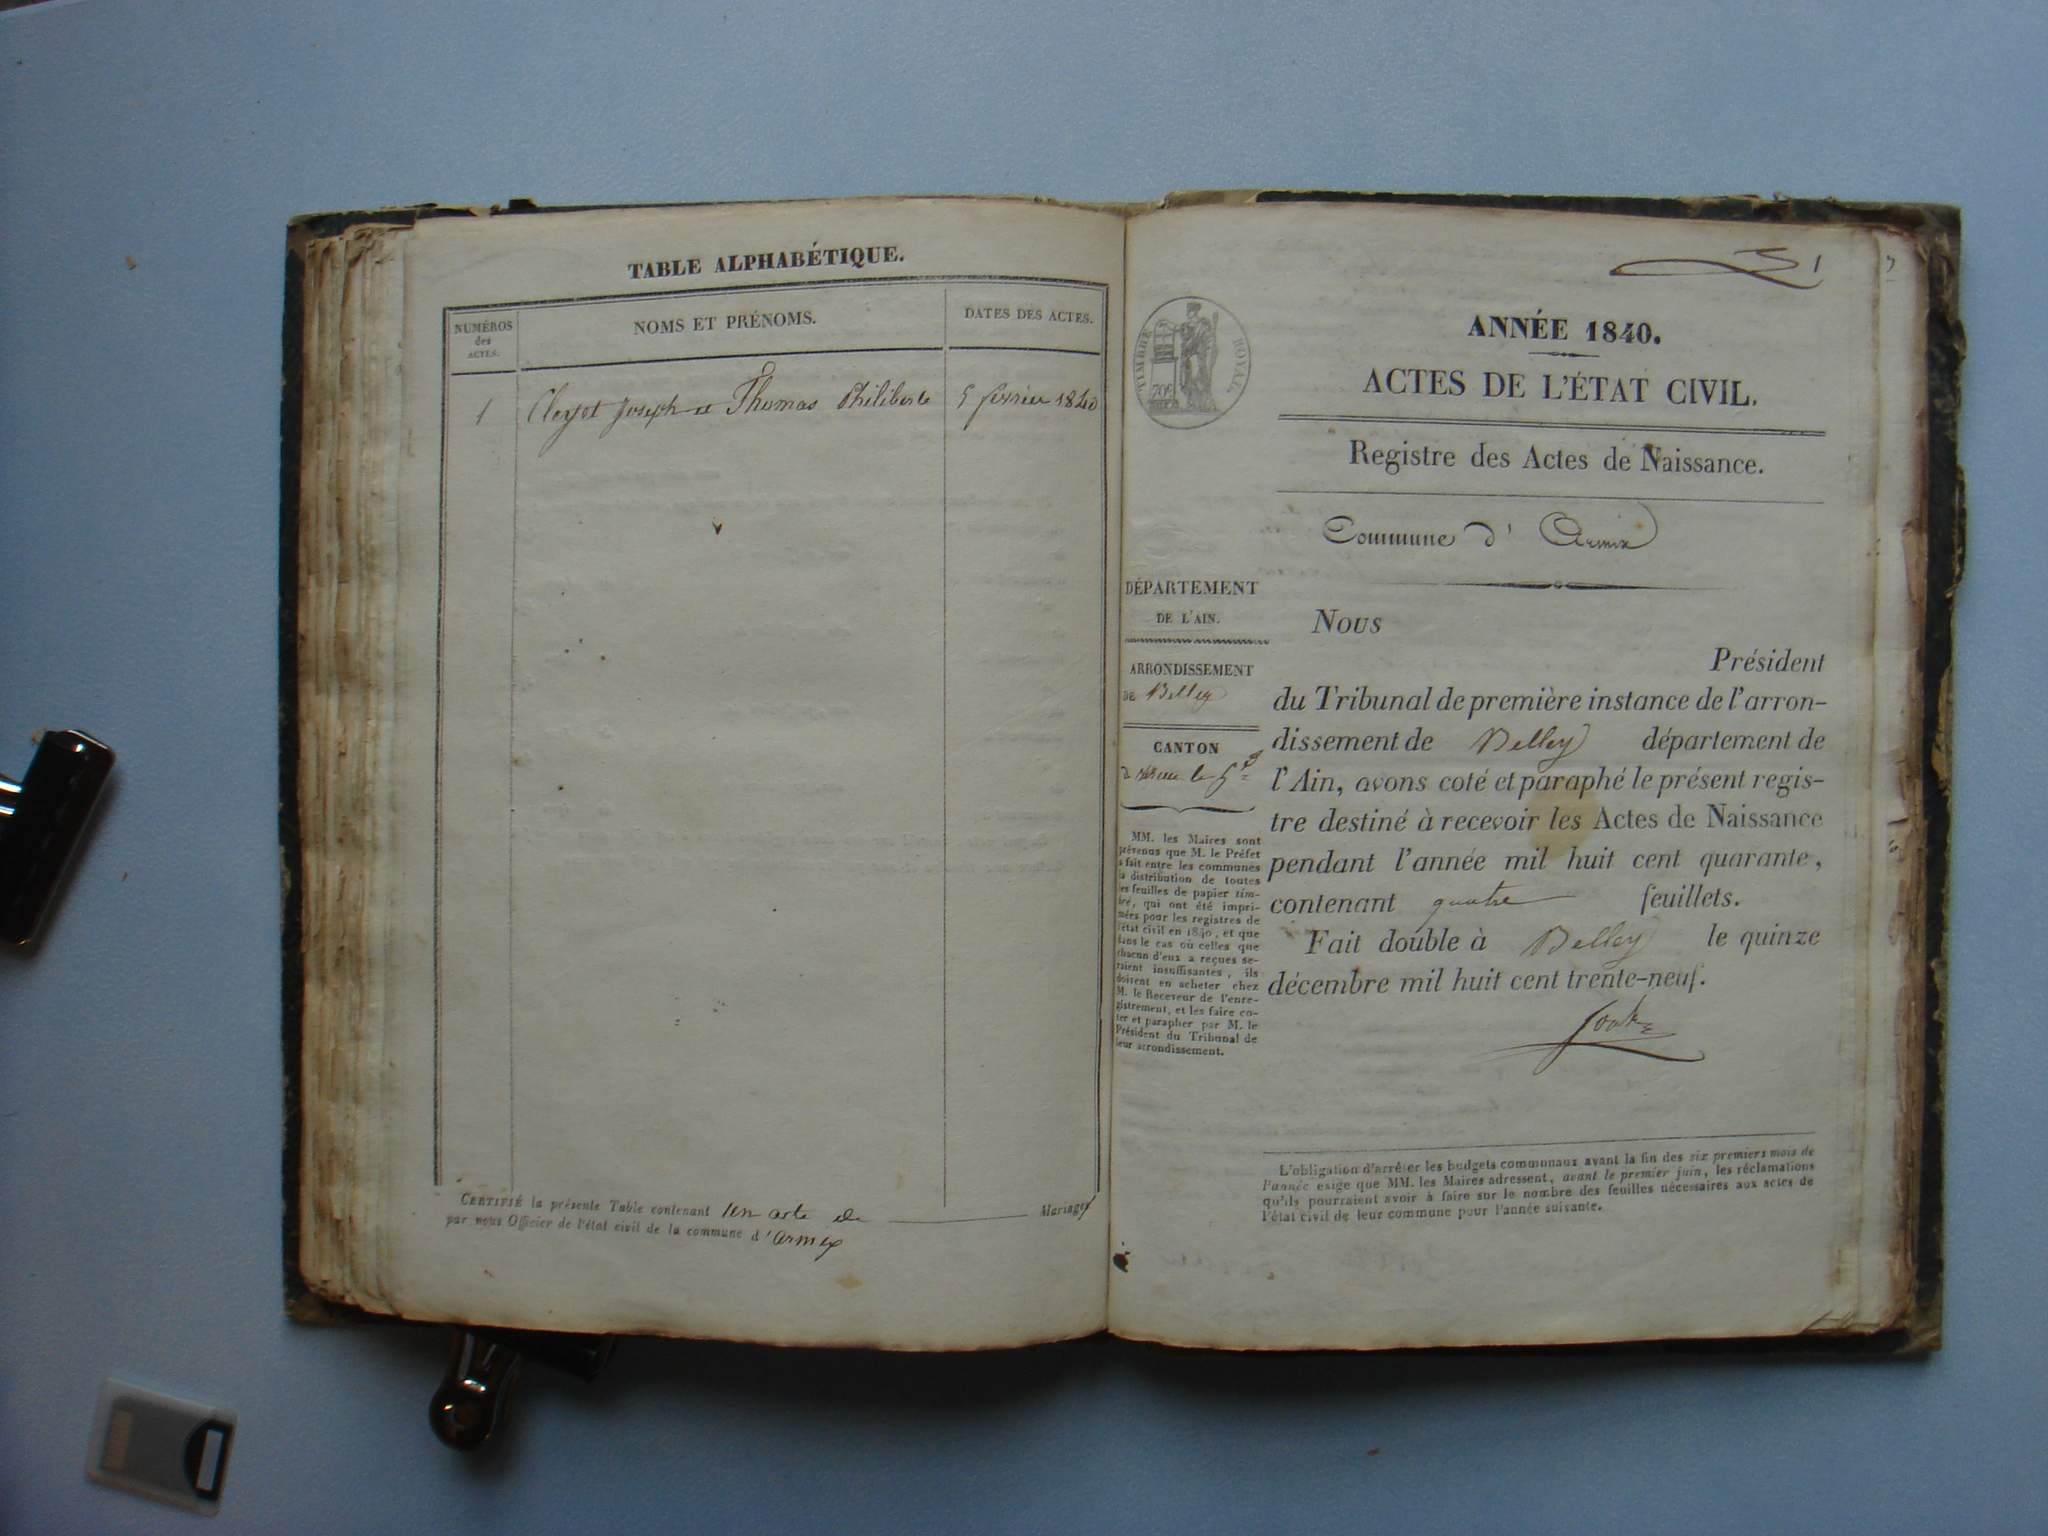 TABLE ALPHABÉTIQUE.
NUMÉROS
des
ACTES.
NOMS ET PRÉNOMS.
DATES DES ACTES.
1 Cleyet Joseph et Thomas Philiberte 5 février 1840
CERTIFIÉ la présente Table contenant un acte de Mariages
par nous Officier de l'état civil de la commune d'armix
1
TIMBRE ROYAL
70c
ANNÉE 1840.
ACTES DE L'ÉTAT CIVIL.
Registre des Actes de Naissance.
Commune d' Armix
DÉPARTEMENT
DE L'AIN.
ARRONDISSEMENT
DE Belley
CANTON
MM. les Maires sont
prévenus que M. le Préfet
a fait entre les communes
la distribution de toutes
les feuilles de papier tim-
bré, qui ont été impri-
mées pour les registres de
l'état civil en 1840, et que
dans le cas où celles que
chacun d'eux a reçues se-
raient insuffisantes, ils
doivent en acheter chez
M. le Receveur de l'enre-
gistrement, et les faire co-
ter et parapher par M. le
Président du Tribunal de
leur arrondissement.
Nous
Président
du Tribunal de première instance de l'arron-
dissement de Belley département de
l'Ain, avons coté et paraphé le présent regis-
tre destiné à recevoir les Actes de Naissance
pendant l'année mil huit cent quarante,
contenant quatre feuillets.
Fait double à Belley le quinze
décembre mil huit cent trente-neuf.
L'obligation d'arrêter les budgets communaux avant la fin des six premiers mois de
l'année exige que MM. les Maires adressent, avant le premier juin, les réclamations
qu'ils pourraient avoir à faire sur le nombre des feuilles nécessaires aux actes de
l'état civil de leur commune pour l'année suivante.